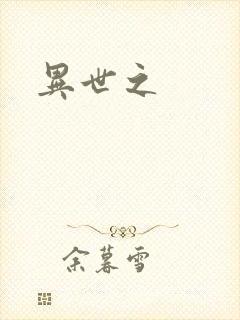 異世之
余暮雪